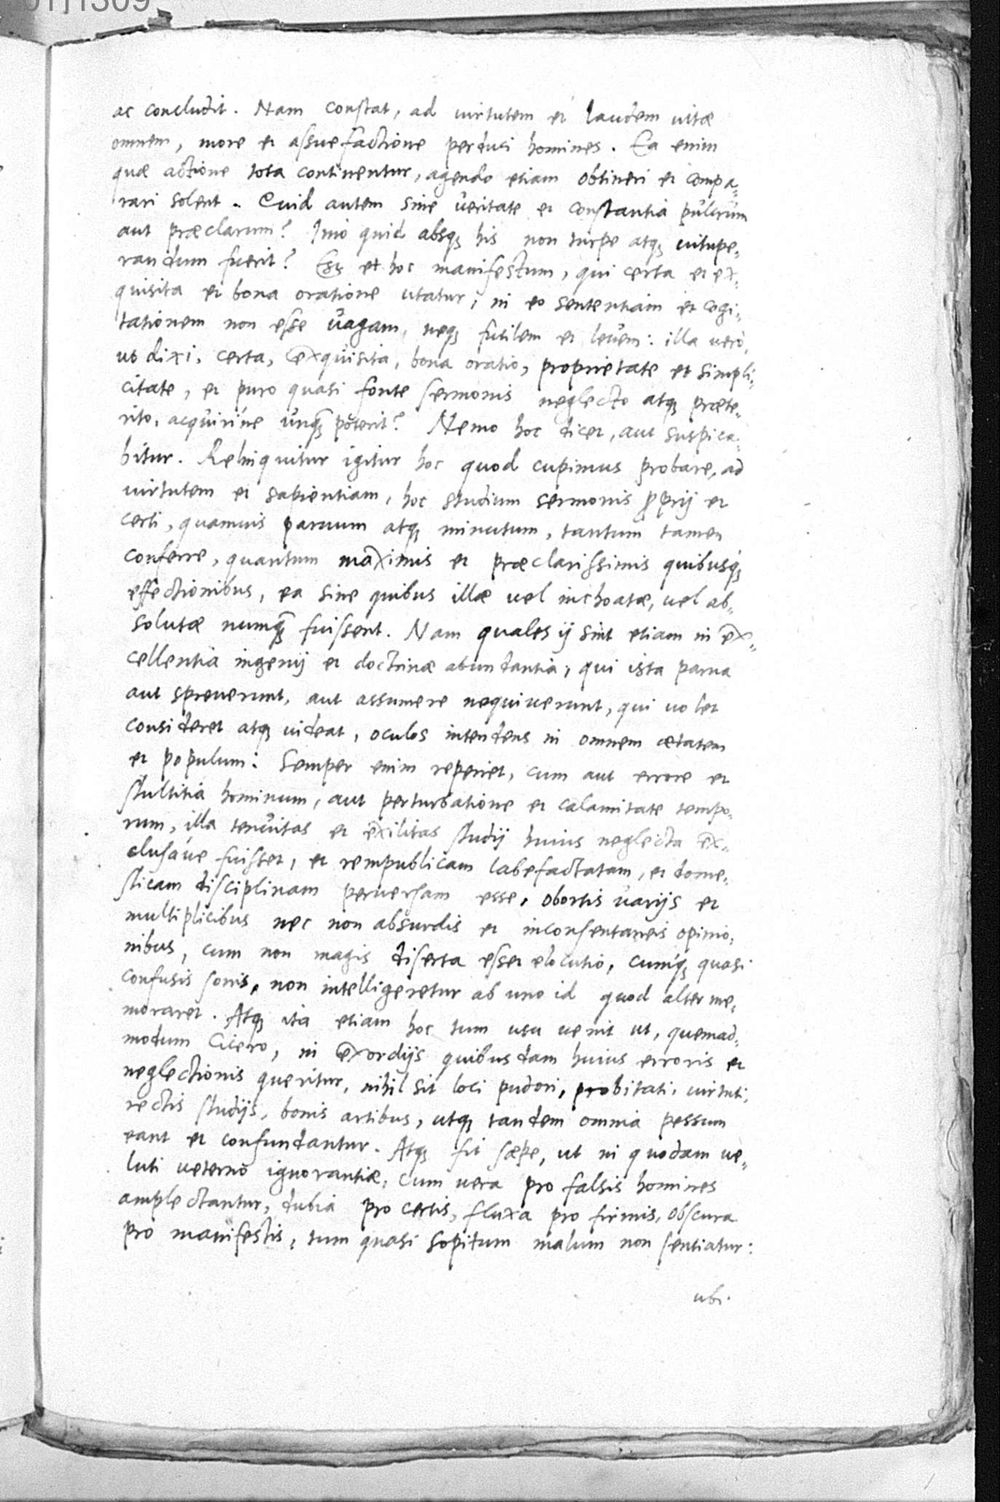 01]1309
ac concludit. Nam constat, ad virtutem et laudem vitæ
omnem, more et assuefactione perduci homines. Ea enim
quæ actione tota continentur, agendo etiam obtineri et compa-
rari solent. Quid autem sine veritate et constantia pulcrum
aut præclarum? Imo quid absq; his non turpe atq; vitupe-
randum fuerit? Est et hoc manifestum, qui certa et ex-
quisita et bona oratione utatur, in eo sententiam et cogi-
tationem non esse vagam, neq; futilem et levem: illa vero,
ut dixi, certa, exquisita, bona oratio, proprietate et simpli-
citate, et puro quasi fonte sermonis neglecto atq; præte-
rito, acquirine unq̃ poterit? Nemo hoc dicet, aut suspica-
bitur. Relinquitur igitur hoc quod cupimus probare, ad
virtutem et sapientiam, hoc studium sermonis ꝓprij et
certi, quamvis parvum atq; minutum, tantum tamen
conferre, quantum maximis et præclarissimis quibusq;
effectionibus, ea sine quibus illæ vel inchoatæ, vel ab-
solutæ numq̃ fuissent. Nam quales ij sint etiam in ex-
cellentia ingenij et doctrinæ abundantia, qui ista parva
aut spreverunt, aut assumere nequiverunt, qui volet
consideret atq; videat, oculos intendens in omnem ætatem
et populum. Semper enim reperiet, cum aut errore et
stultitia hominum, aut perturbatione et calamitate tempo-
rum, illa tenuitas et exilitas studij huius neglecta ex-
clusave fuisset, et rempublicam labefactatam, et dome-
sticam disciplinam perversam esse, obortis varijs et
multiplicibus nec non absurdis et inconsentaneis opinio-
nibus, cum non magis diserta esset elocutio, cumq; quasi
confusis sonis, non intelligeretur ab uno id quod alter me-
moraret. Atq; ita etiam hoc tum usu venit ut, quemad-
modum Cicero, in exordijs quibusdam huius erroris et
neglectionis queritur, nihil sit loci pudori, probitati, virtuti,
rectis studijs, bonis artibus, utq; tandem omnia pessum
eant et confundantur. Atq; fit sæpe, ut in quodam ve-
luti veterno ignorantiæ, cum vera pro falsis homines
amplectantur, dubia pro certis, fluxa pro firmis, obscura
pro manifestis, tum quasi sopitum malum non sentiatur:
ubi